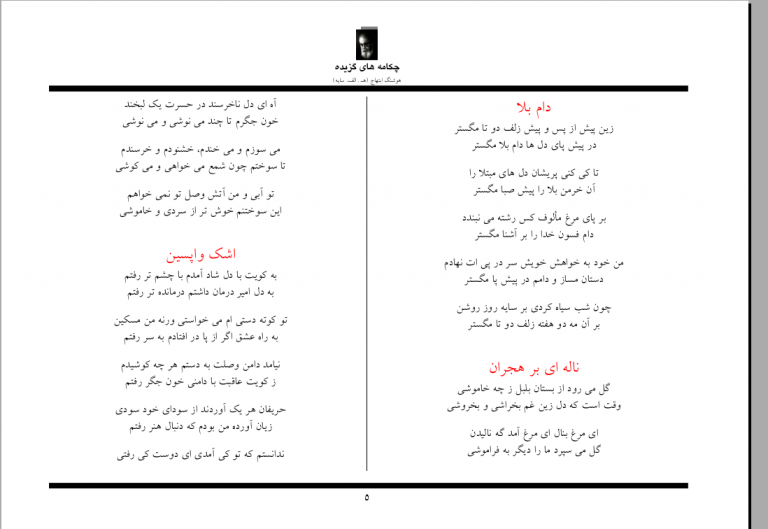 چکامه های گزیده
هوشنگ ابتهاج (هـ. الف. سایه)
دام بلا
زین پیش از پس و پیش زلف دو تا مگستر
در پیش پای دل ها دام بلا مگستر
تا کی کنی پریشان دل های مبتلا را
آن خرمن بلا را پیش صبا مگستر
بر پای مرغ مألوف کس رشته می نبندد
دام فسون خدا را بر آشنا مگستر
من خود به خواهش خویش سر در پی ات نهادم
دستان مساز و دامم در پیش پا مگستر
چون شب سیاه کردی بر سایه روز روشن
بر آن مه دو هفته زلف دو تا مگستر
ناله ای بر هجران
گل می رود از بستان بلبل ز چه خاموشی
وقت است که دل زین غم بخراشی و بخروشی
ای مرغ بنال ای مرغ آمد گه نالیدن
گل می سپرد ما را دیگر به فراموشی
آه ای دل ناخرسند در حسرت یک لبخند
خون جگرم تا چند می نوشی و می نوشی
می سوزم و می خندم، خشنودم و خرسندم
تا سوختم چون شمع می خواهی و می کوشی
تو آبی و من آتش وصل تو نمی خواهم
این سوختنم خوش تر از سردی و خاموشی
اشک واپسین
به کویت با دل شاد آمدم با چشم تر رفتم
به دل امیر درمان داشتم درمانده تر رفتم
تو کوته دستی ام می خواستی ورنه من مسکین
به راه عشق اگر از پا در افتادم به سر رفتم
نیامد دامن وصلت به دستم هر چه کوشیدم
ز کویت عاقبت با دامنی خون جگر رفتم
حریفان هر یک آوردند از سودای خود سودی
زیان آورده من بودم که دنبال هنر رفتم
ندانستم که تو کی آمدی ای دوست کی رفتی
۵